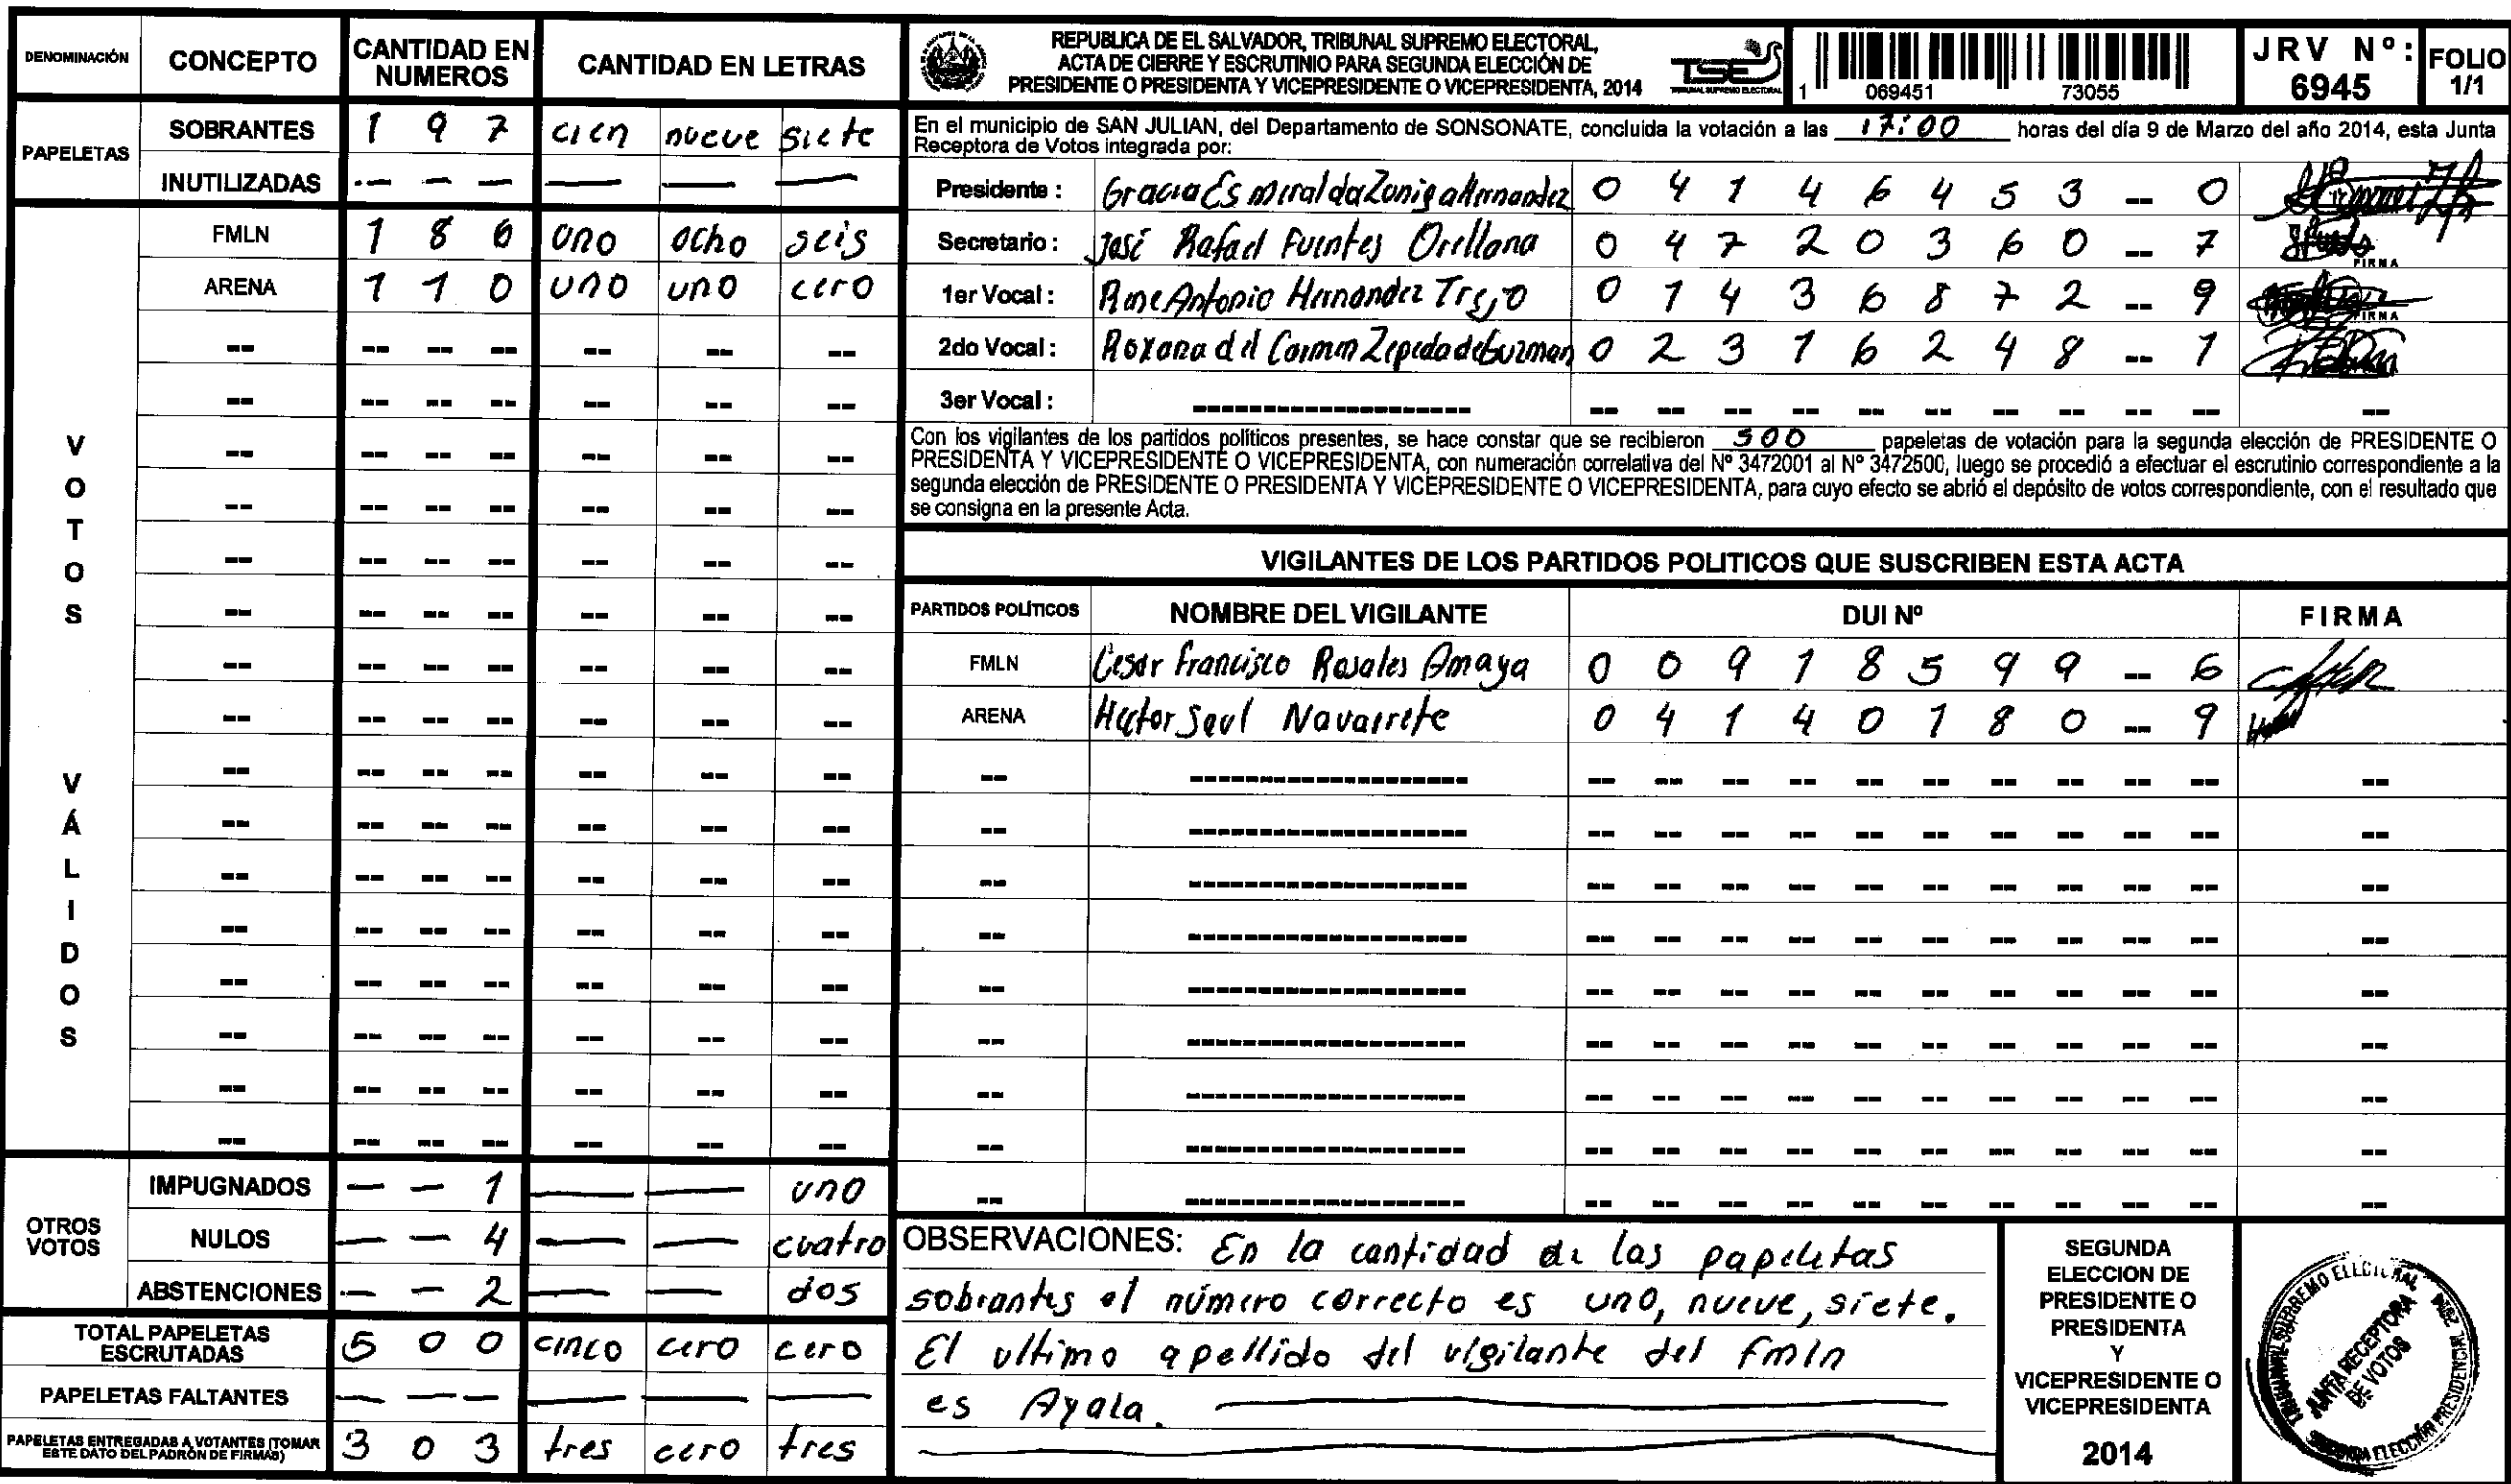 DENOMINACIÓN CONCEPTO CANTIDAD EN NUMEROS CANTIDAD EN LETRAS
PAPELETAS
SOBRANTES 1 9 7 cien nueve siete
INUTILIZADAS -- -- --
VOTOS VÁLIDOS
FMLN 1 8 6 uno ocho seis
ARENA 1 1 0 uno uno cero
OTROS VOTOS
IMPUGNADOS — — 1 — — uno
NULOS — — 4 — — cuatro
ABSTENCIONES — — 2 — — dos
TOTAL PAPELETAS ESCRUTADAS 5 0 0 cinco cero cero
PAPELETAS FALTANTES — — — — — —
PAPELETAS ENTREGADAS A VOTANTES (TOMAR ESTE DATO DEL PADRÓN DE FIRMAS) 3 0 3 tres cero tres
REPUBLICA DE EL SALVADOR, TRIBUNAL SUPREMO ELECTORAL,
ACTA DE CIERRE Y ESCRUTINIO PARA SEGUNDA ELECCIÓN DE
PRESIDENTE O PRESIDENTA Y VICEPRESIDENTE O VICEPRESIDENTA, 2014
TSE
TRIBUNAL SUPREMO ELECTORAL
1 069451 73055
JRV Nº: 6945
FOLIO 1/1
En el municipio de SAN JULIAN, del Departamento de SONSONATE, concluida la votación a las 17:00 horas del día 9 de Marzo del año 2014, esta Junta
Receptora de Votos integrada por:
Presidente : Gracia Esmeralda Zuniga Hernandez 0 4 1 4 6 4 5 3 -- 0
Secretario : José Rafael Fuentes Orellana 0 4 7 2 0 3 6 0 -- 7 FIRMA
1er Vocal : Rene Antonio Hernandez Trejo 0 1 4 3 6 8 7 2 -- 9 FIRMA
2do Vocal : Roxana del Carmen Zepeda de Guzman 0 2 3 1 6 2 4 8 -- 1
3er Vocal :
Con los vigilantes de los partidos políticos presentes, se hace constar que se recibieron 500 papeletas de votación para la segunda elección de PRESIDENTE O
PRESIDENTA Y VICEPRESIDENTE O VICEPRESIDENTA, con numeración correlativa del Nº 3472001 al Nº 3472500, luego se procedió a efectuar el escrutinio correspondiente a la
segunda elección de PRESIDENTE O PRESIDENTA Y VICEPRESIDENTE O VICEPRESIDENTA, para cuyo efecto se abrió el depósito de votos correspondiente, con el resultado que
se consigna en la presente Acta.
VIGILANTES DE LOS PARTIDOS POLITICOS QUE SUSCRIBEN ESTA ACTA
PARTIDOS POLÍTICOS NOMBRE DEL VIGILANTE DUI Nº FIRMA
FMLN Cesar Francisco Rosales Amaya 0 0 9 1 8 5 9 9 -- 6
ARENA Hector Saul Navarrete 0 4 1 4 0 1 8 0 -- 9
OBSERVACIONES: En la cantidad de las papeletas
sobrantes el número correcto es uno, nueve, siete.
El ultimo apellido del vigilante del fmln
es Ayala.
SEGUNDA
ELECCION DE
PRESIDENTE O
PRESIDENTA
Y
VICEPRESIDENTE O
VICEPRESIDENTA
2014
TRIBUNAL SUPREMO ELECTORAL
JUNTA RECEPTORA
DE VOTOS
SEGUNDA ELECCIÓN PRESIDENCIAL 2014